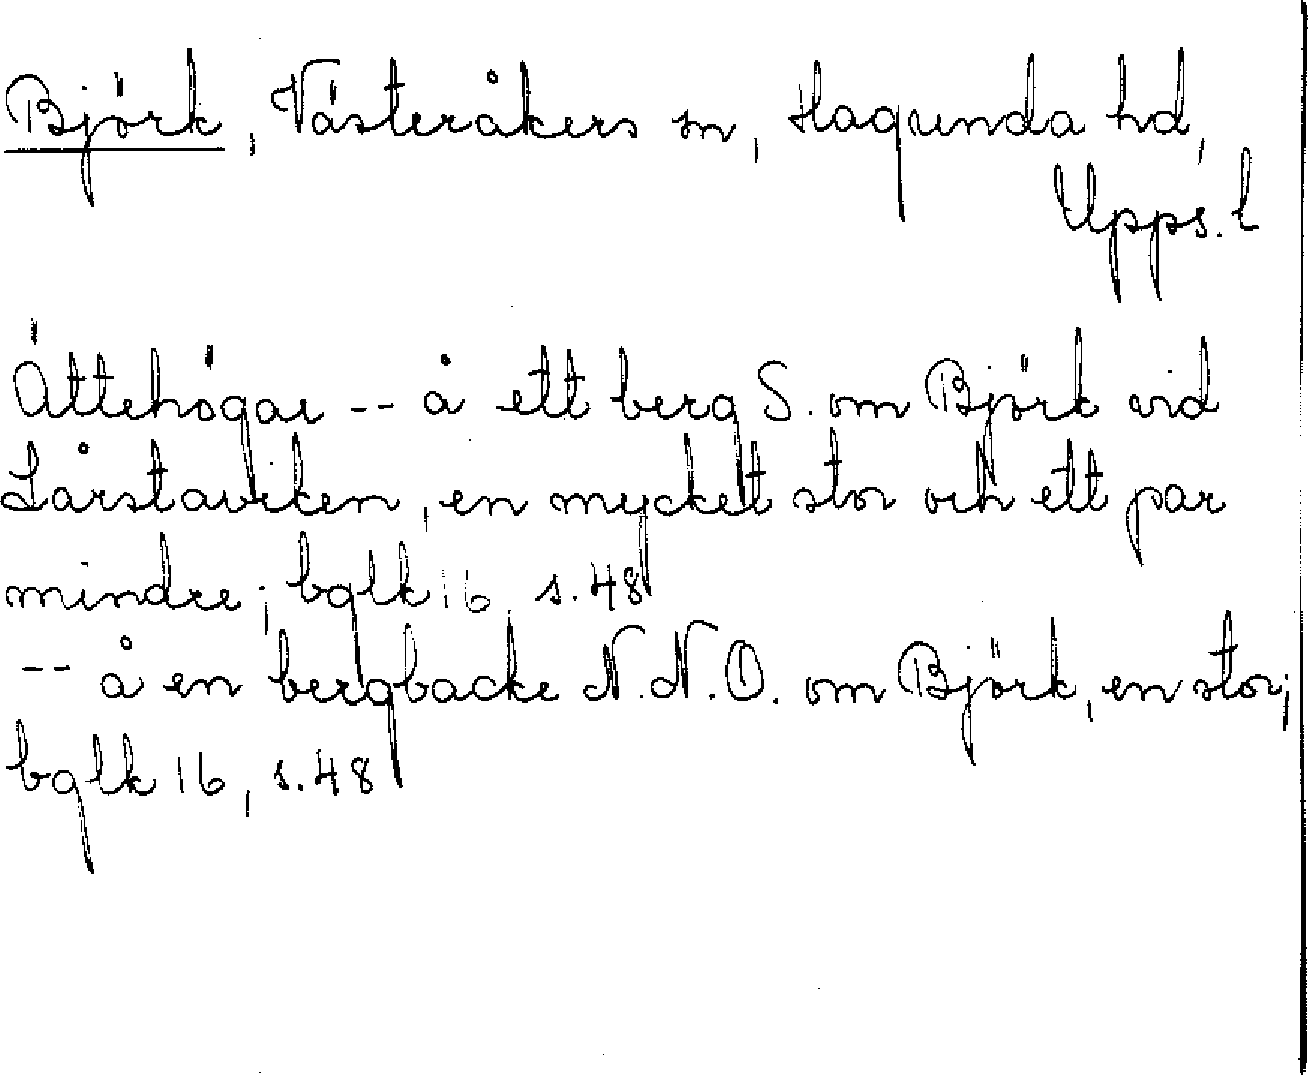 Björk, Västeråkers sn, Hagunda hd,
Upps. l
Ättehögar -- å ett berg S. om Björk vid
Lårstaviken, en mycket stor och ett par
mindre; bglk 16, s. 48
-- å en bergbacke N.N.O. om Björk, en stor;
bglk 16, s. 48